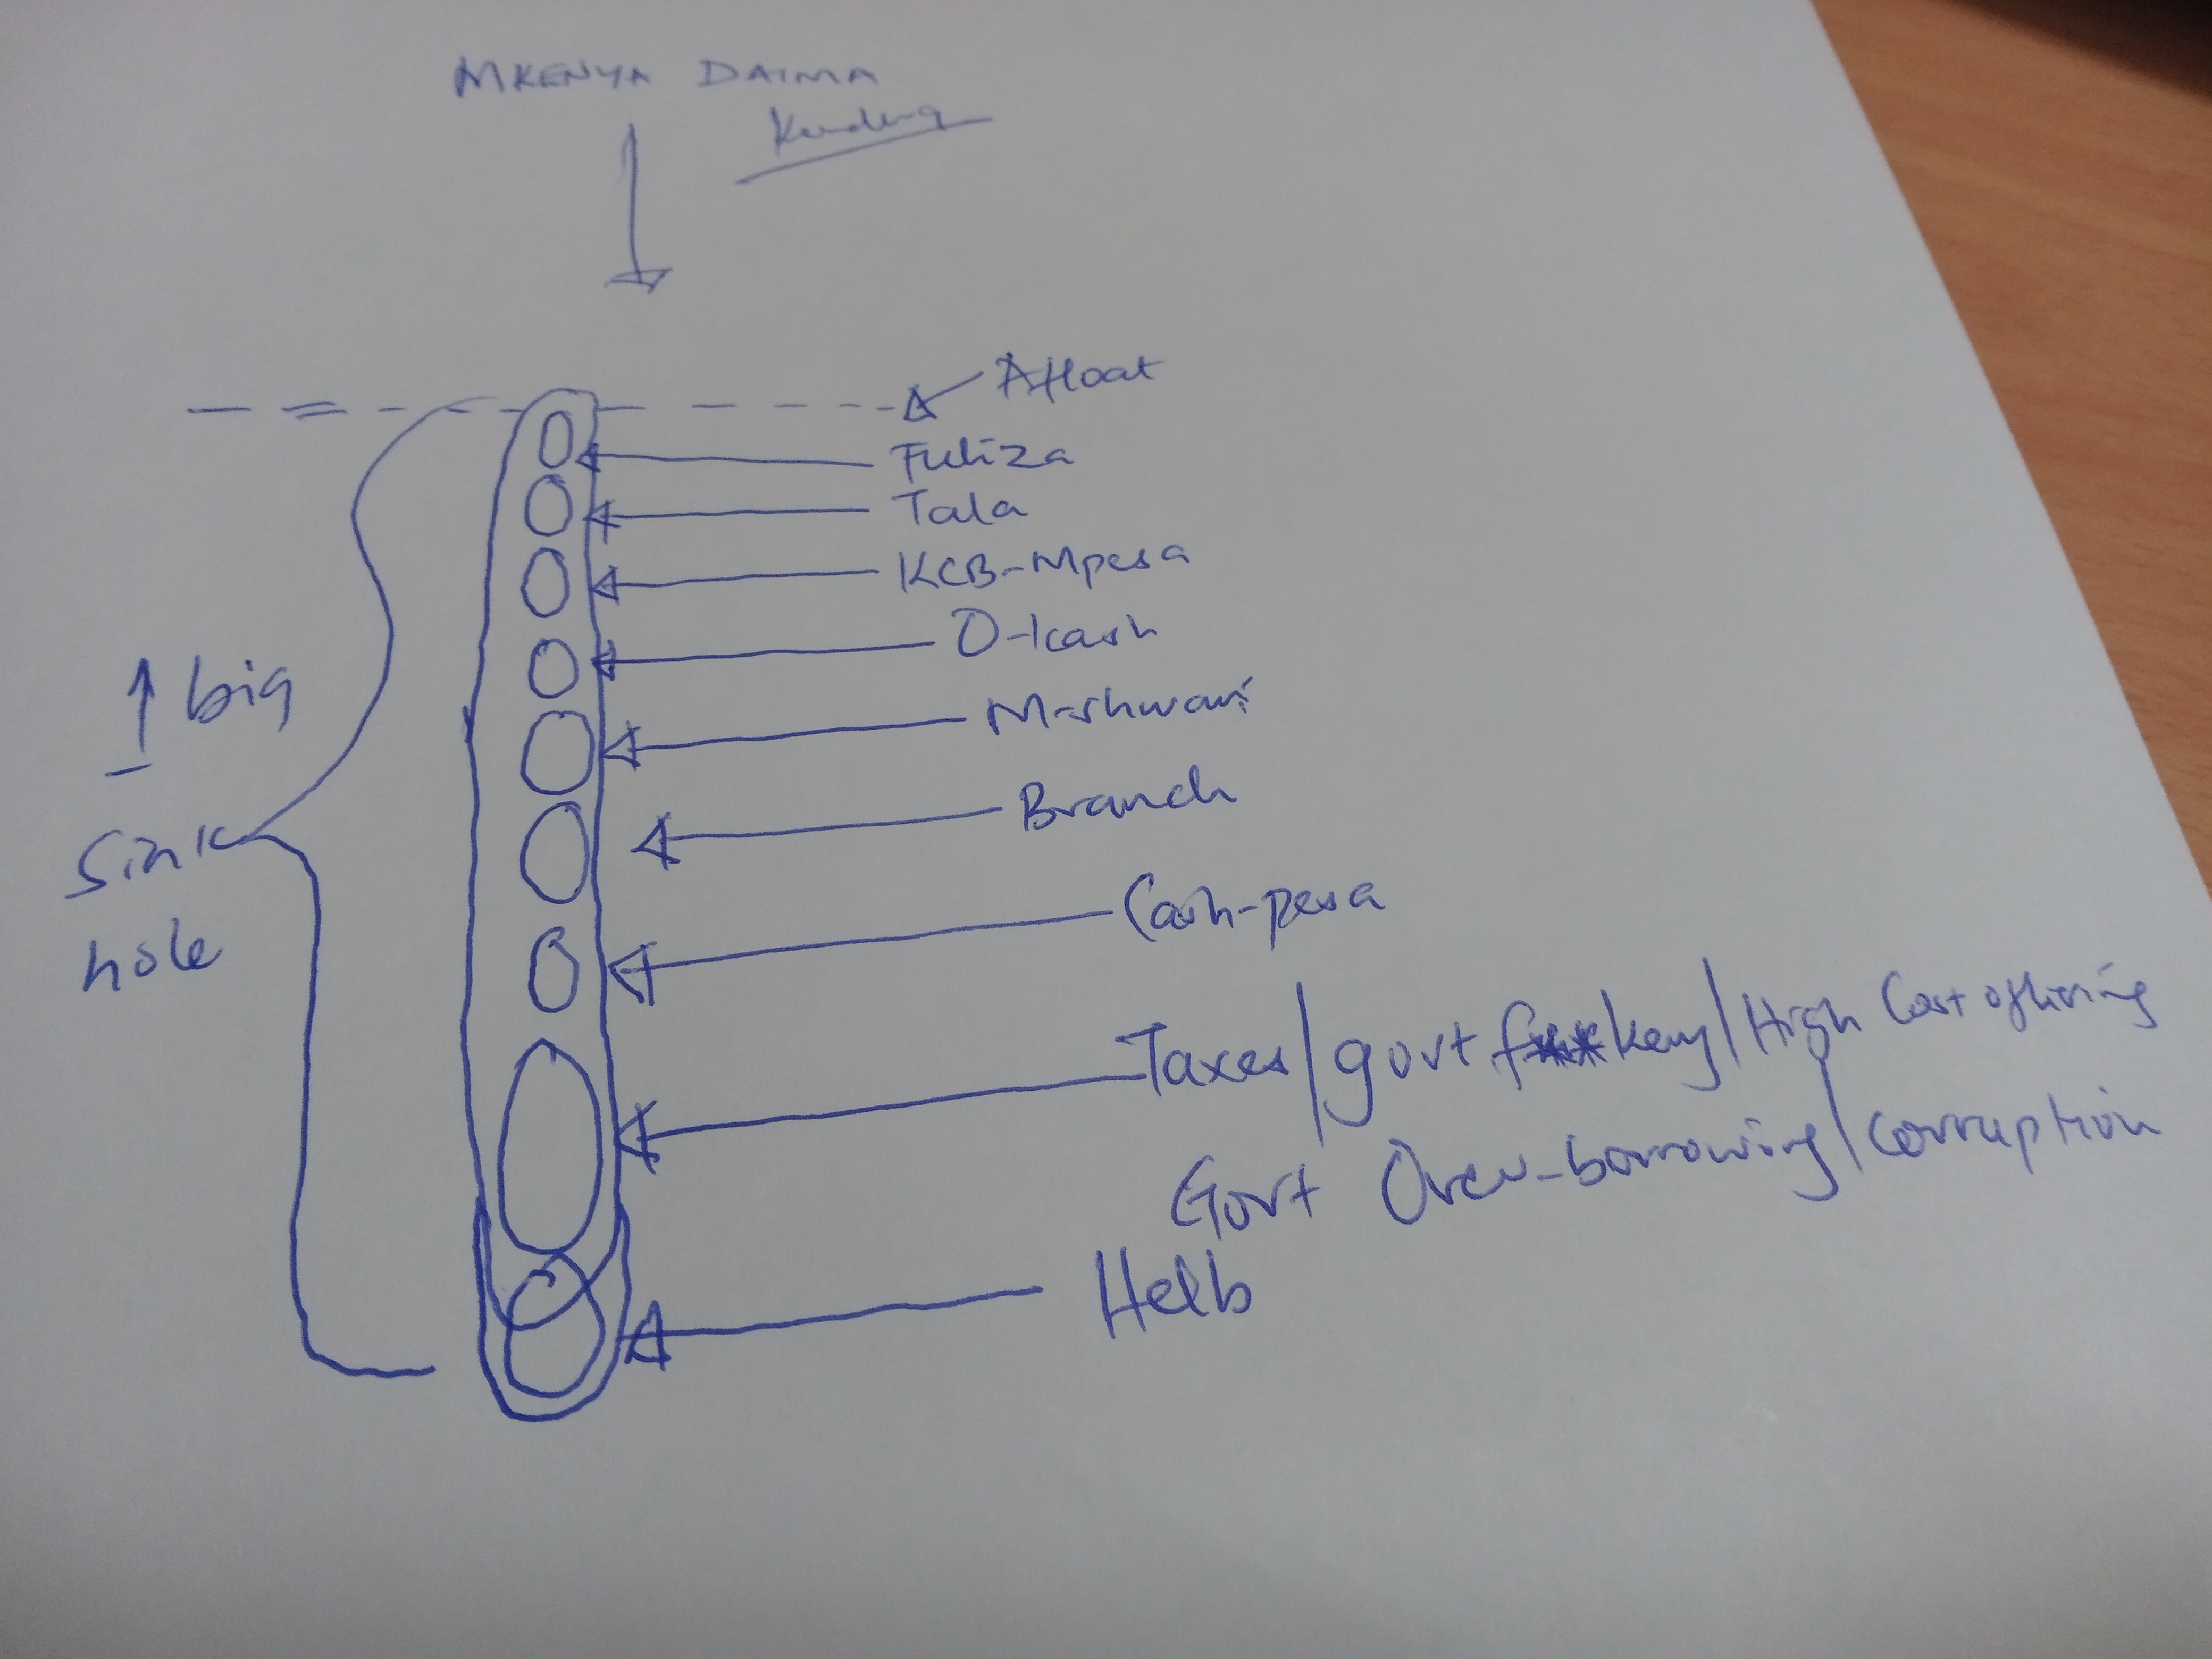 MKENYA DAIMA
Afloat
Fuliza
Tala
KCB-Mpesa
O-kash
M-shwari
Branch
Cash-pesa
Taxes/govt f***kery/High Cost of living
Govt Over-borrowing/corruption
Helb
1 big
Sink
hole